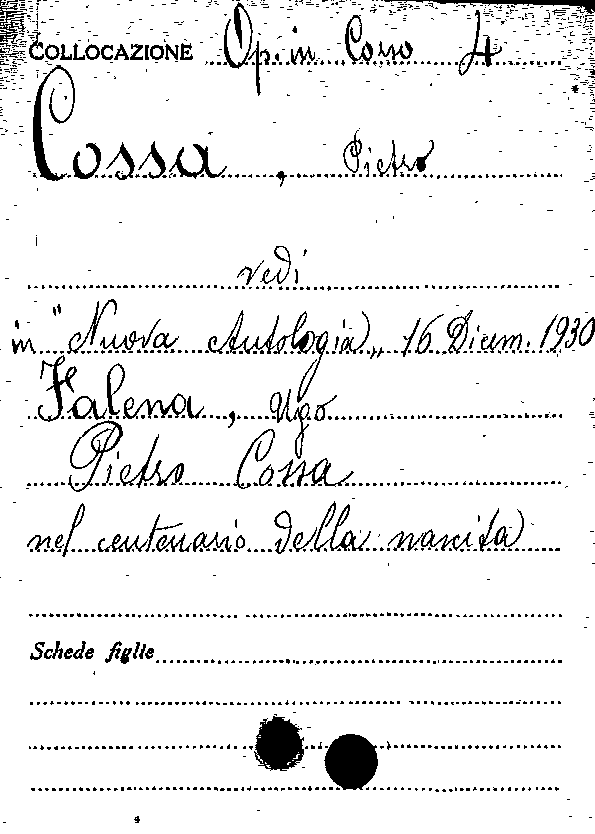 COLLOCAZIONE Op. in Corso 4
Cossa, Pietro
vedi
in "Nuova Antologia„ 16 Dicem. 1930
Falena, Ugo
Pietro Cossa
nel centenario della nascita
Schede figlie